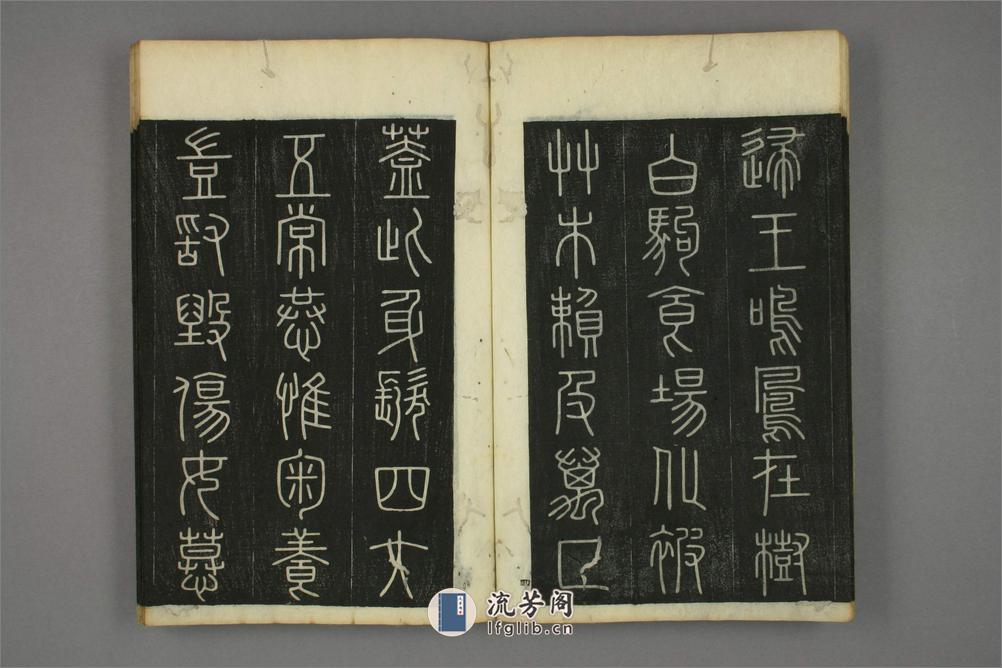 歸王鳴鳳在樹
白駒食場化被
草木賴及萬方
蓋此身髮四大
五常恭惟鞠養
豈敢毀傷女慕
流芳阁
lfglib.cn